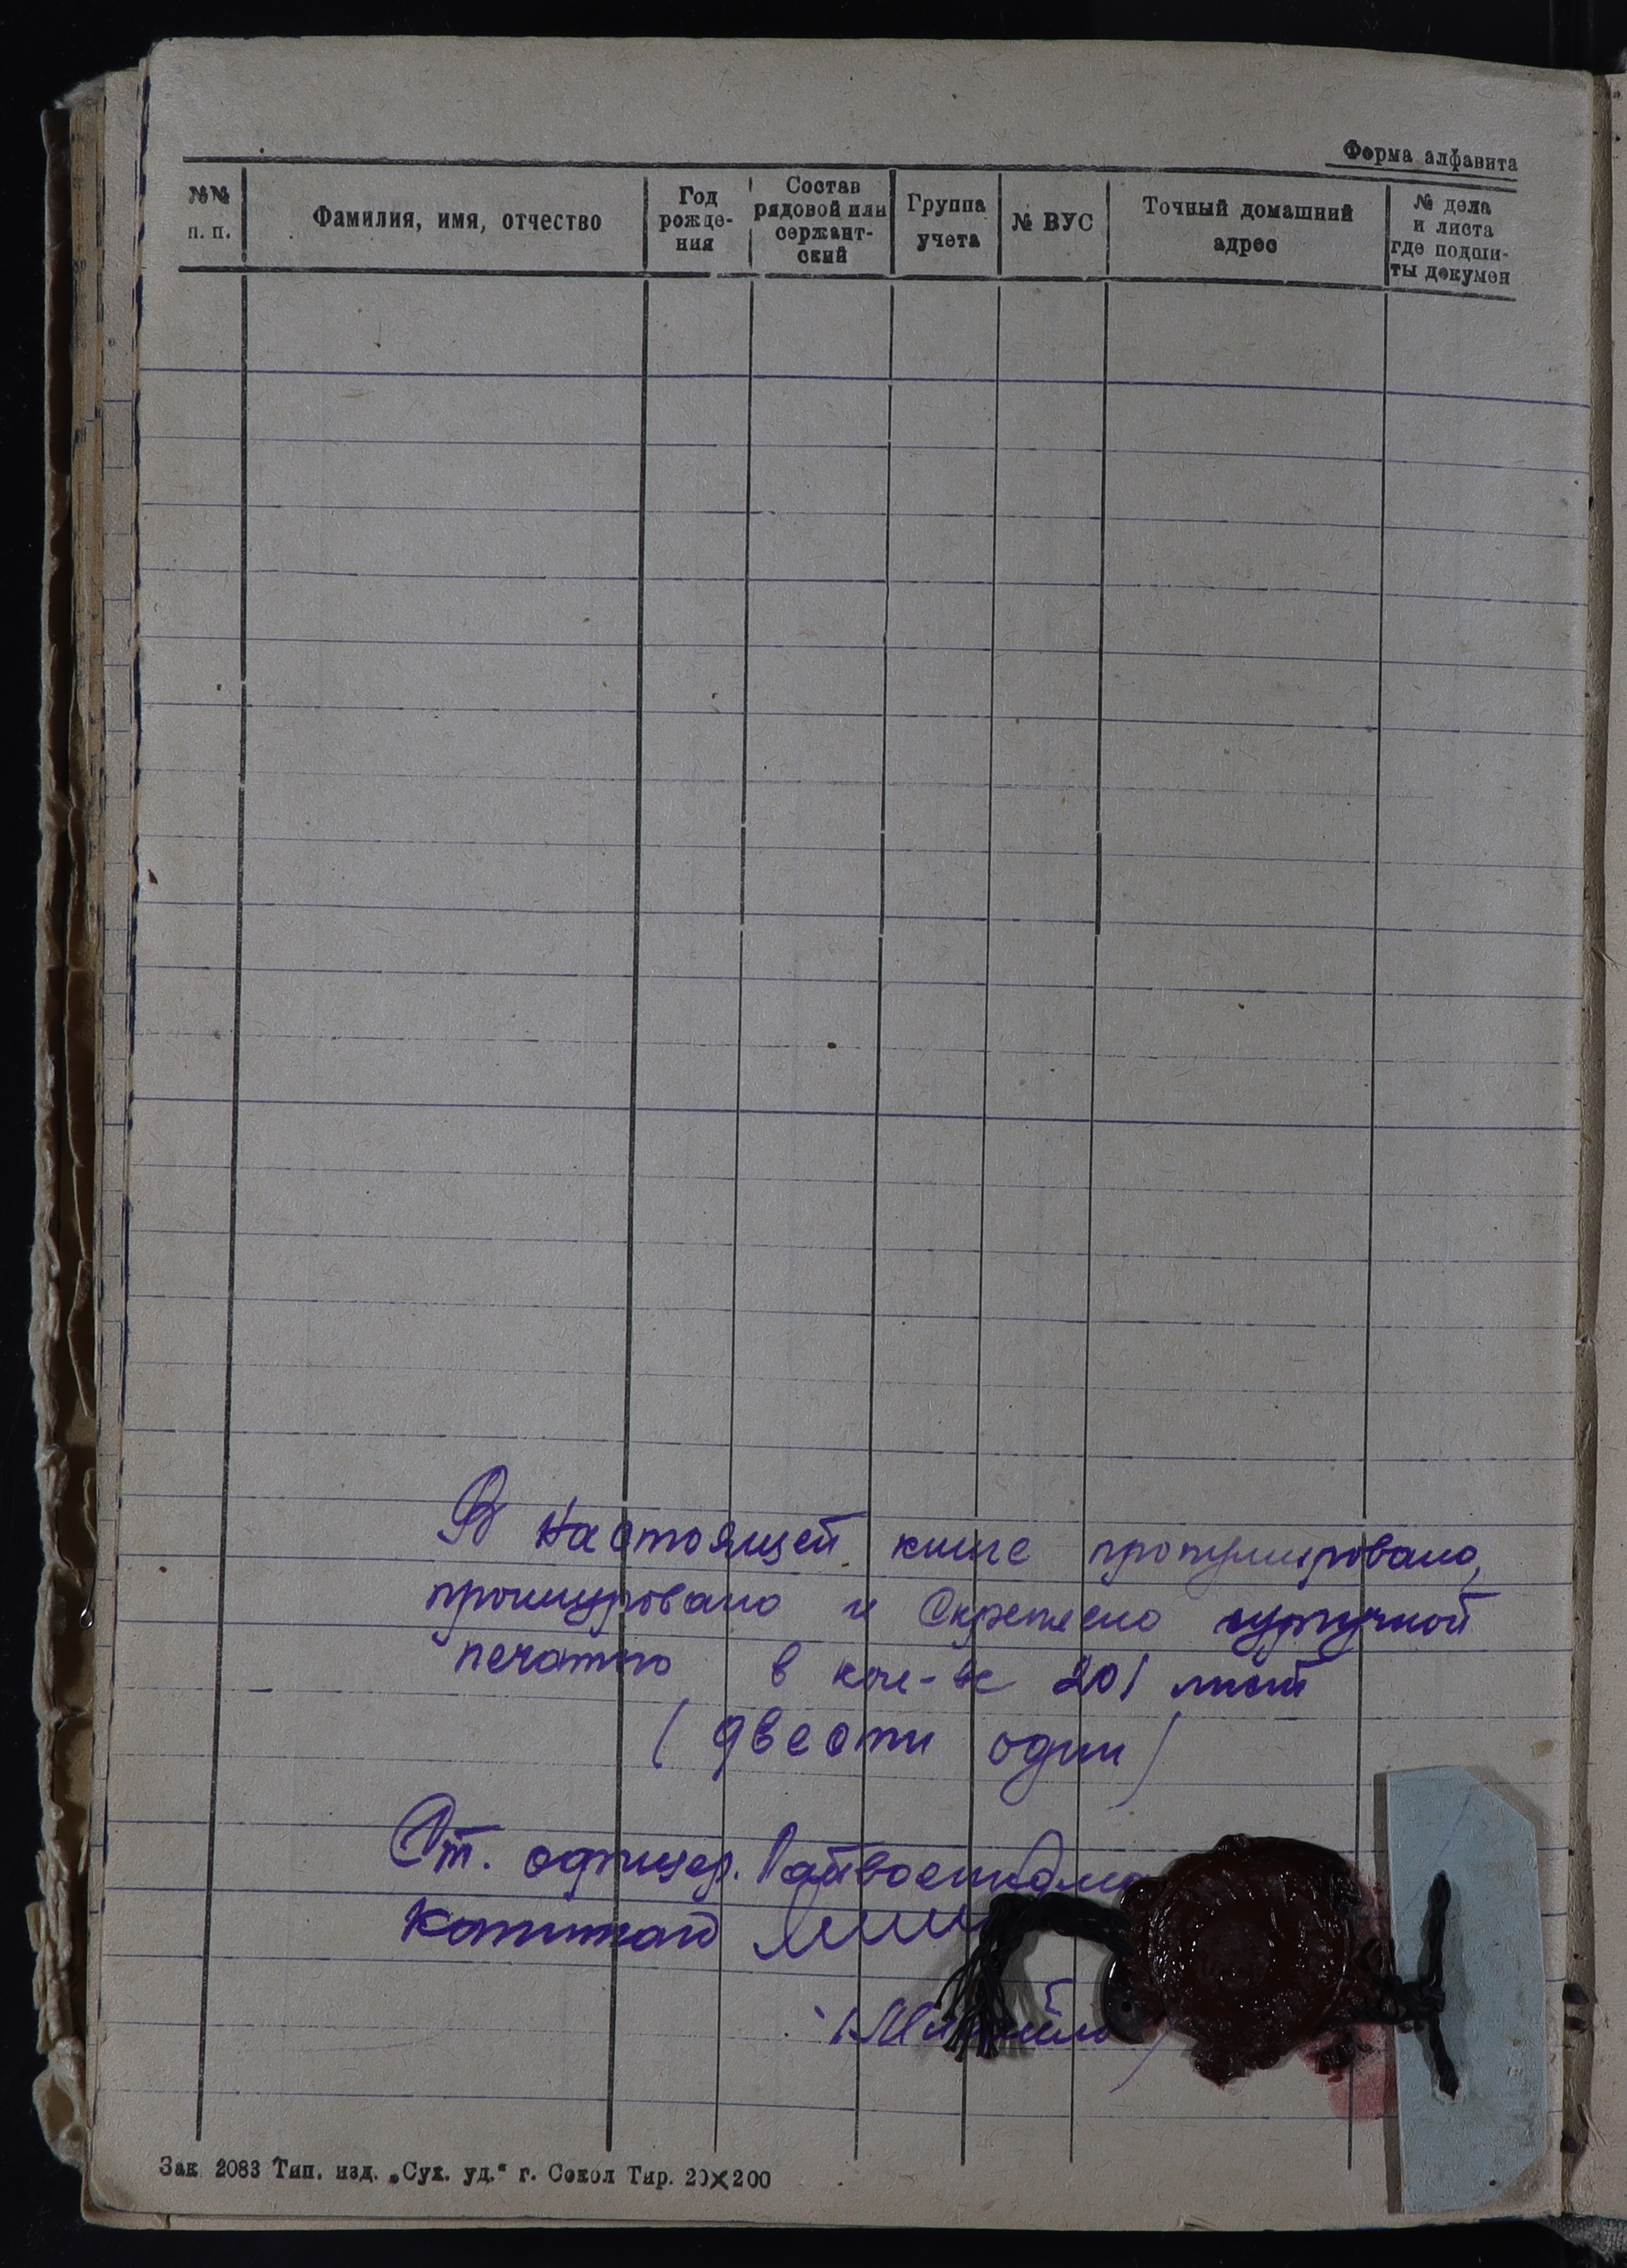 Форма алфавита
№№ п. п.
Фамилия, имя, отчество
Год рожде-ния
Состав рядовой или сержант-ский
Группа учета
№ ВУС
Точный домашний адрес
№ дела и листа где подши-ты докумен
В настоящей книге пронумеровано,
прошнуровано и Скреплено сургучной
печатью в кол-ве 201 лист
( двести один )
Ст. офицер. Райвоенкомата
капитан
Зак 2083 Тип. изд. „Сух. уд.“ г. Сокол Тир. 20×200